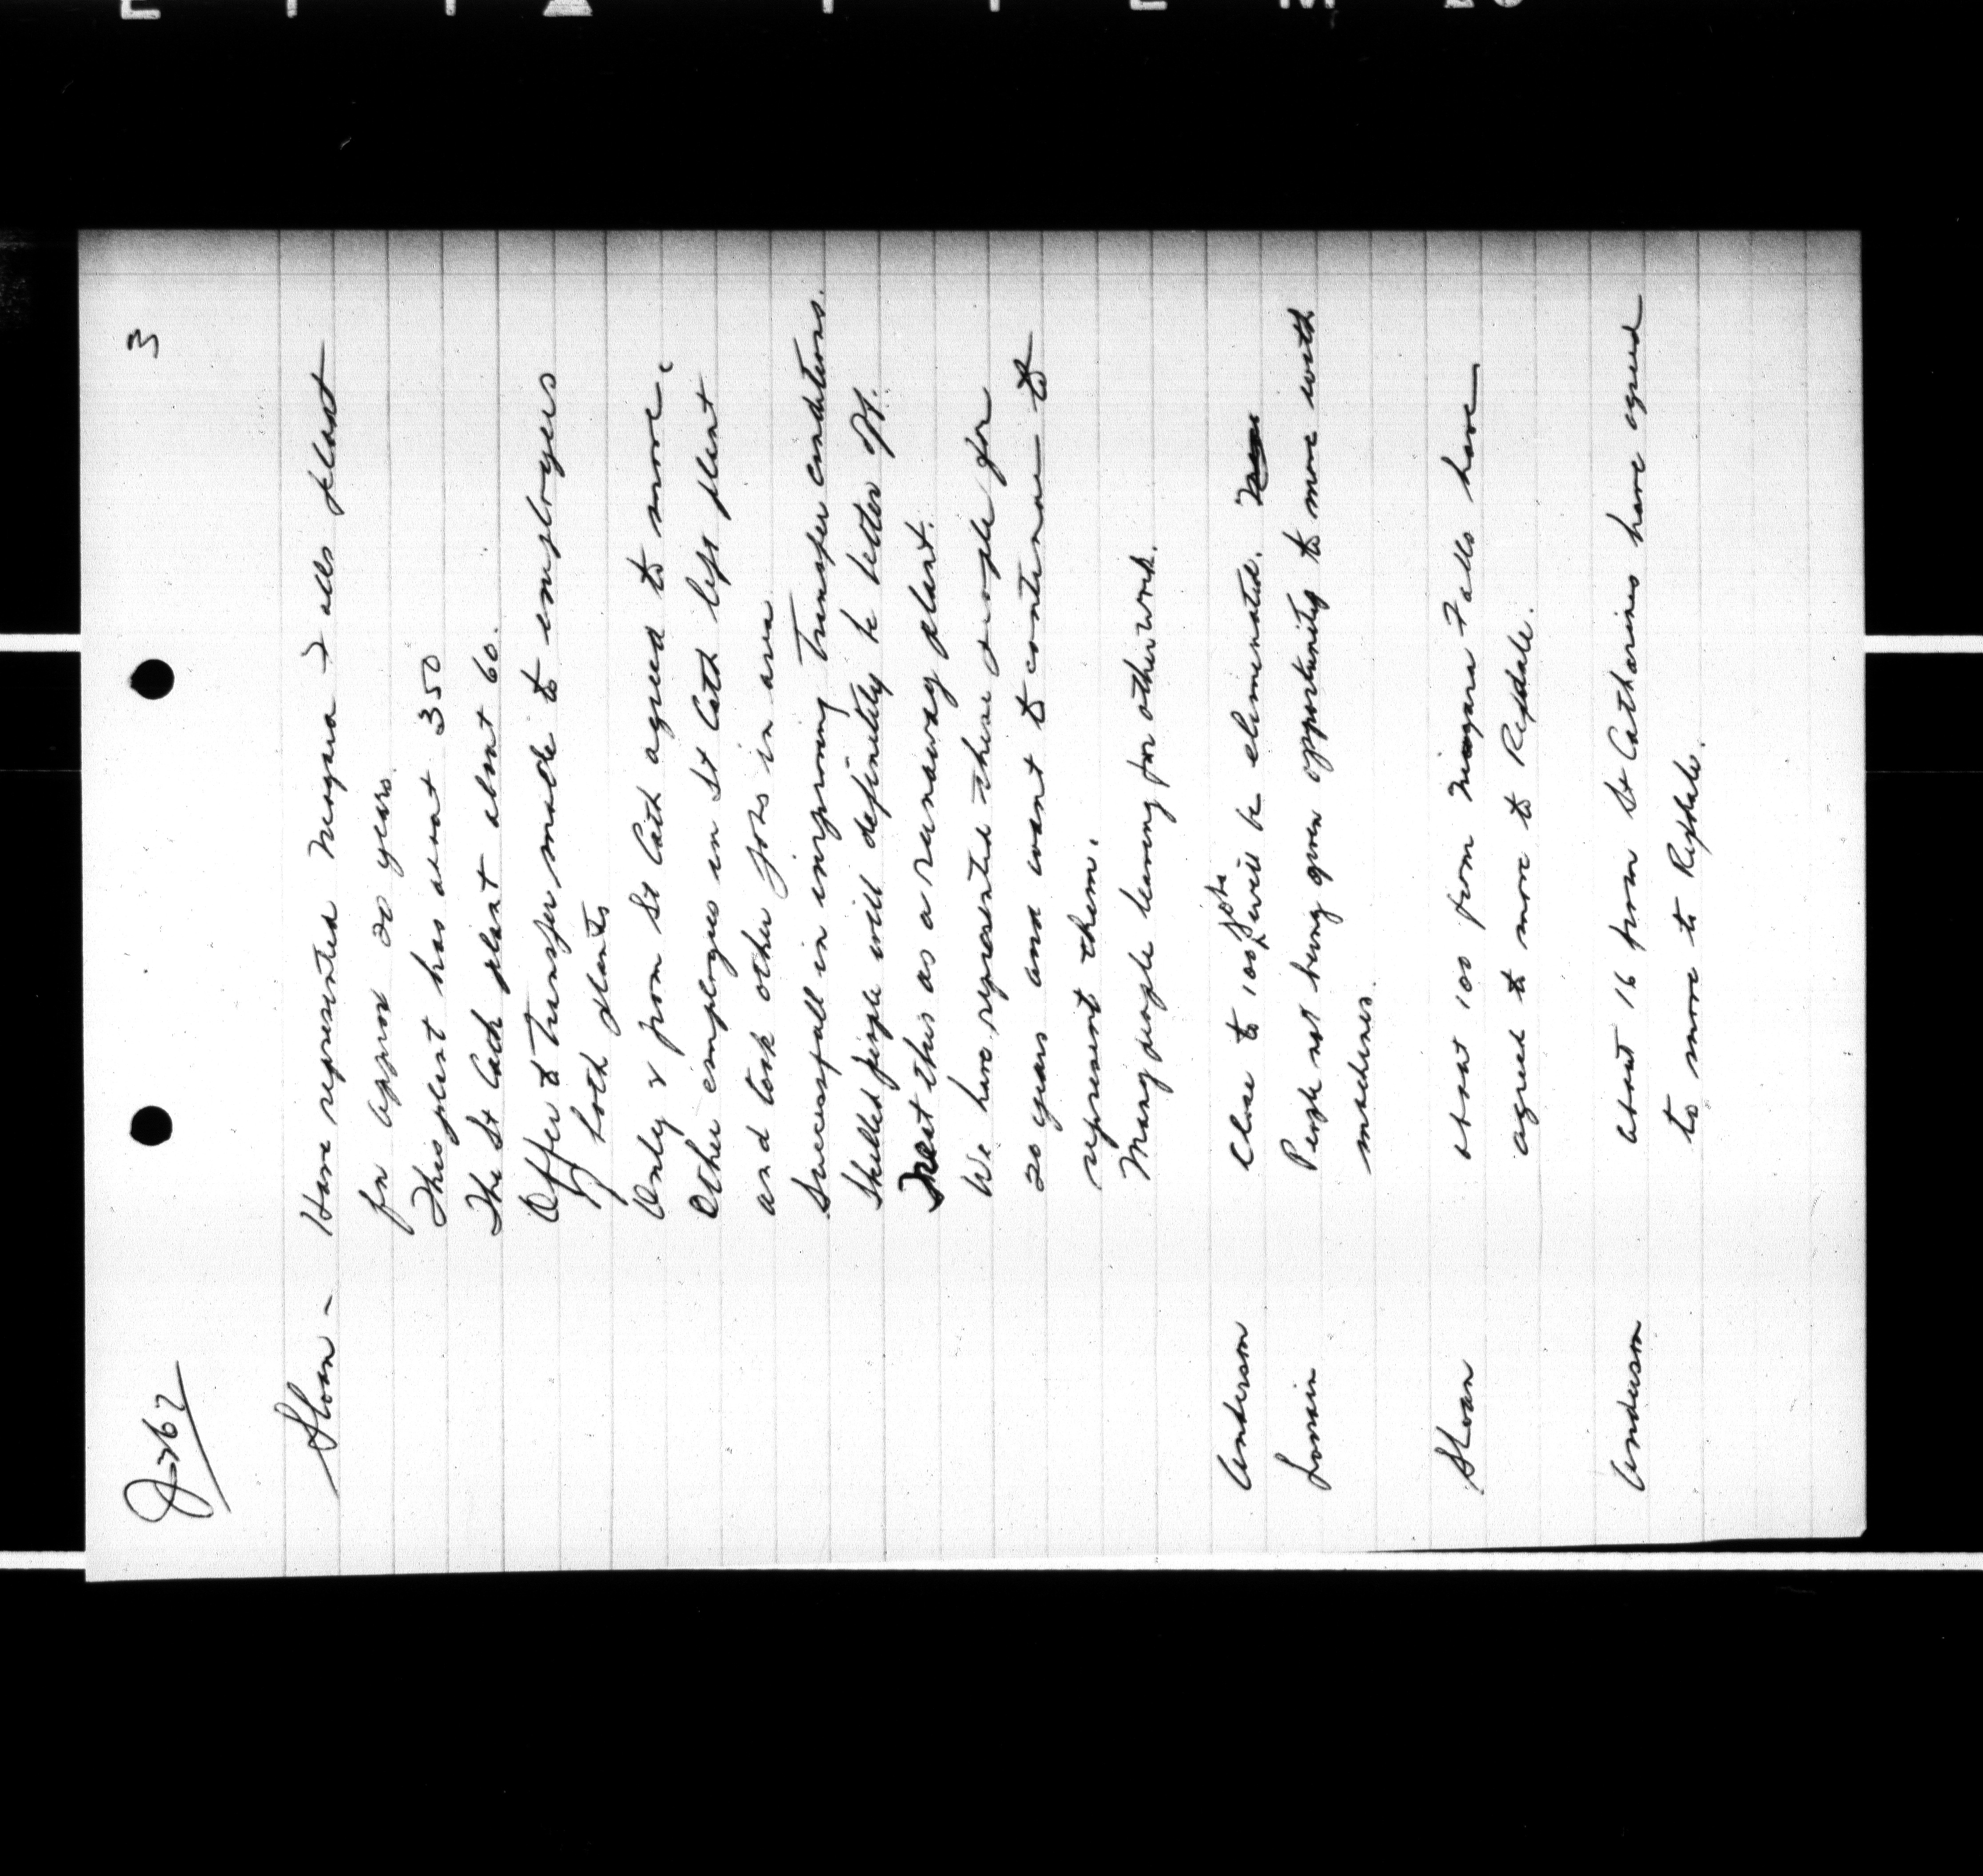 3
Sloan - Have represented Niagara Falls plant
for approx 20 years.
This plant has about 350
The St Cath plant about 60.
Offer to transfer made to employees
of both plants
Only 2 from St Cath agreed to move.
Other employees in St Cath left plant
and took other jobs in area
Successfull in improving transfer conditions.
Skilled people will definitely be better off.
Treat this as a runaway plant.
We have represented these people for
20 years and want to continue to
represent them.
Many people leaving for other work.
Anderson Close to 100 jobs will be eliminated.
People not being given opportunity to move with
machines.
Sloan about 100 from Niagara Falls have
agreed to move to Rexdale.
Anderson about 16 from St Catharines have agreed
to move to Rexdale.